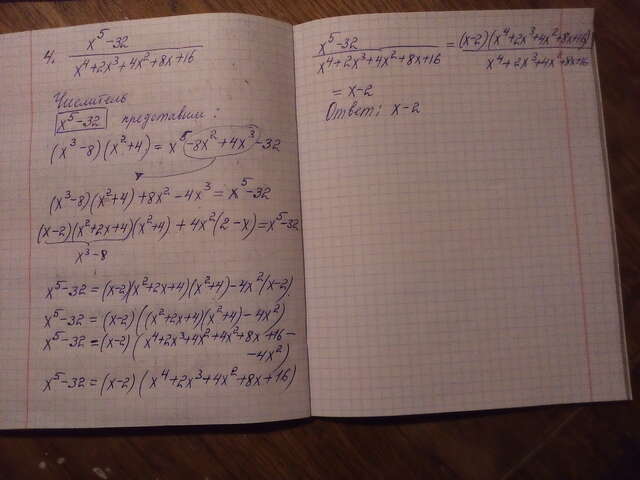 4. (x⁵-32)/(x⁴+2x³+4x²+8x+16)
Числитель
x⁵-32 представим:
(x³-8)(x²+4) = x⁵-8x²+4x³-32
(x³-8)(x²+4)+8x²-4x³ = x⁵-32
(x-2)(x²+2x+4)(x²+4)+4x²(2-x)=x⁵-32
x³-8
x⁵-32 = (x-2)(x²+2x+4)(x²+4)-4x²(x-2)
x⁵-32 = (x-2)((x²+2x+4)(x²+4)-4x²)
x⁵-32 = (x-2)(x⁴+2x³+4x²+4x²+8x+16-
-4x²)
x⁵-32 = (x-2)(x⁴+2x³+4x²+8x+16)
(x⁵-32)/(x⁴+2x³+4x²+8x+16) = (x-2)(x⁴+2x³+4x²+8x+16)/(x⁴+2x³+4x²+8x+16)
= x-2
Ответ: x-2